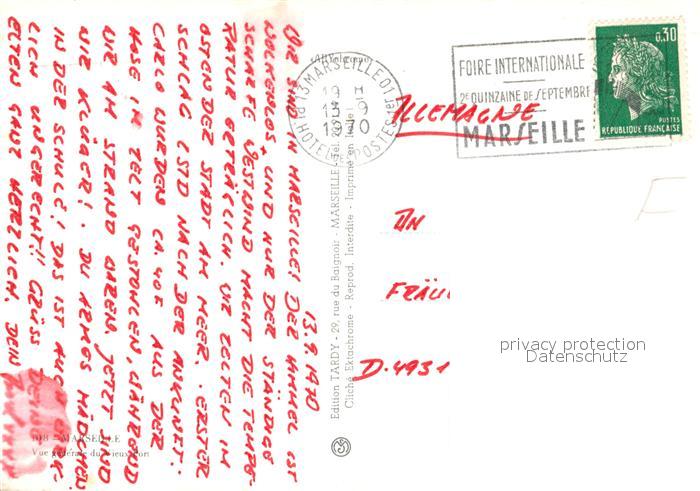 13.9.1970
WIR SIND IN MARSEILLE! DER HIMMEL IST
WOLKENLOS UND NUR DER STÄNDIGE
SCHARFE WESTWIND MACHT DIE TEMPE-
RATUR ERTRÄGLICH. WIR ZELTEN IM
OSTEN DER STADT AM MEER. ERSTER
SCHLAG: 1 STD NACH DER ANKUNFT:
CARLO WURDEN CA. 40F AUS DER
HOSE IM ZELT GESTOHLEN, WÄHREND
WIR AM STRAND WAREN. JETZT SIND
WIR KLÜGER! DU ARMES MÄDCHEN
IN DER SCHULE! DAS IST AUCH
LICH UNGERECHT!! GRÜSS DEINE
ELTERN GANZ HERZLICH. DEIN
108 - MARSEILLE
Vue générale du Vieux Port
Edition TARDY - 29, rue du Baignoir - MARSEILLE
Cliché Ektachrome - Reprod. Interdite - Imprimé en
13 MARSEILLE 01
13 - 9
1970
HOTEL POSTES
FOIRE INTERNATIONALE
2e QUINZAINE DE SEPTEMBRE
MARSEILLE
0,30
POSTES
REPUBLIQUE FRANÇAISE
ALLEMAGNE
AN
FRÄU
D-4931
privacy protection
Datenschutz